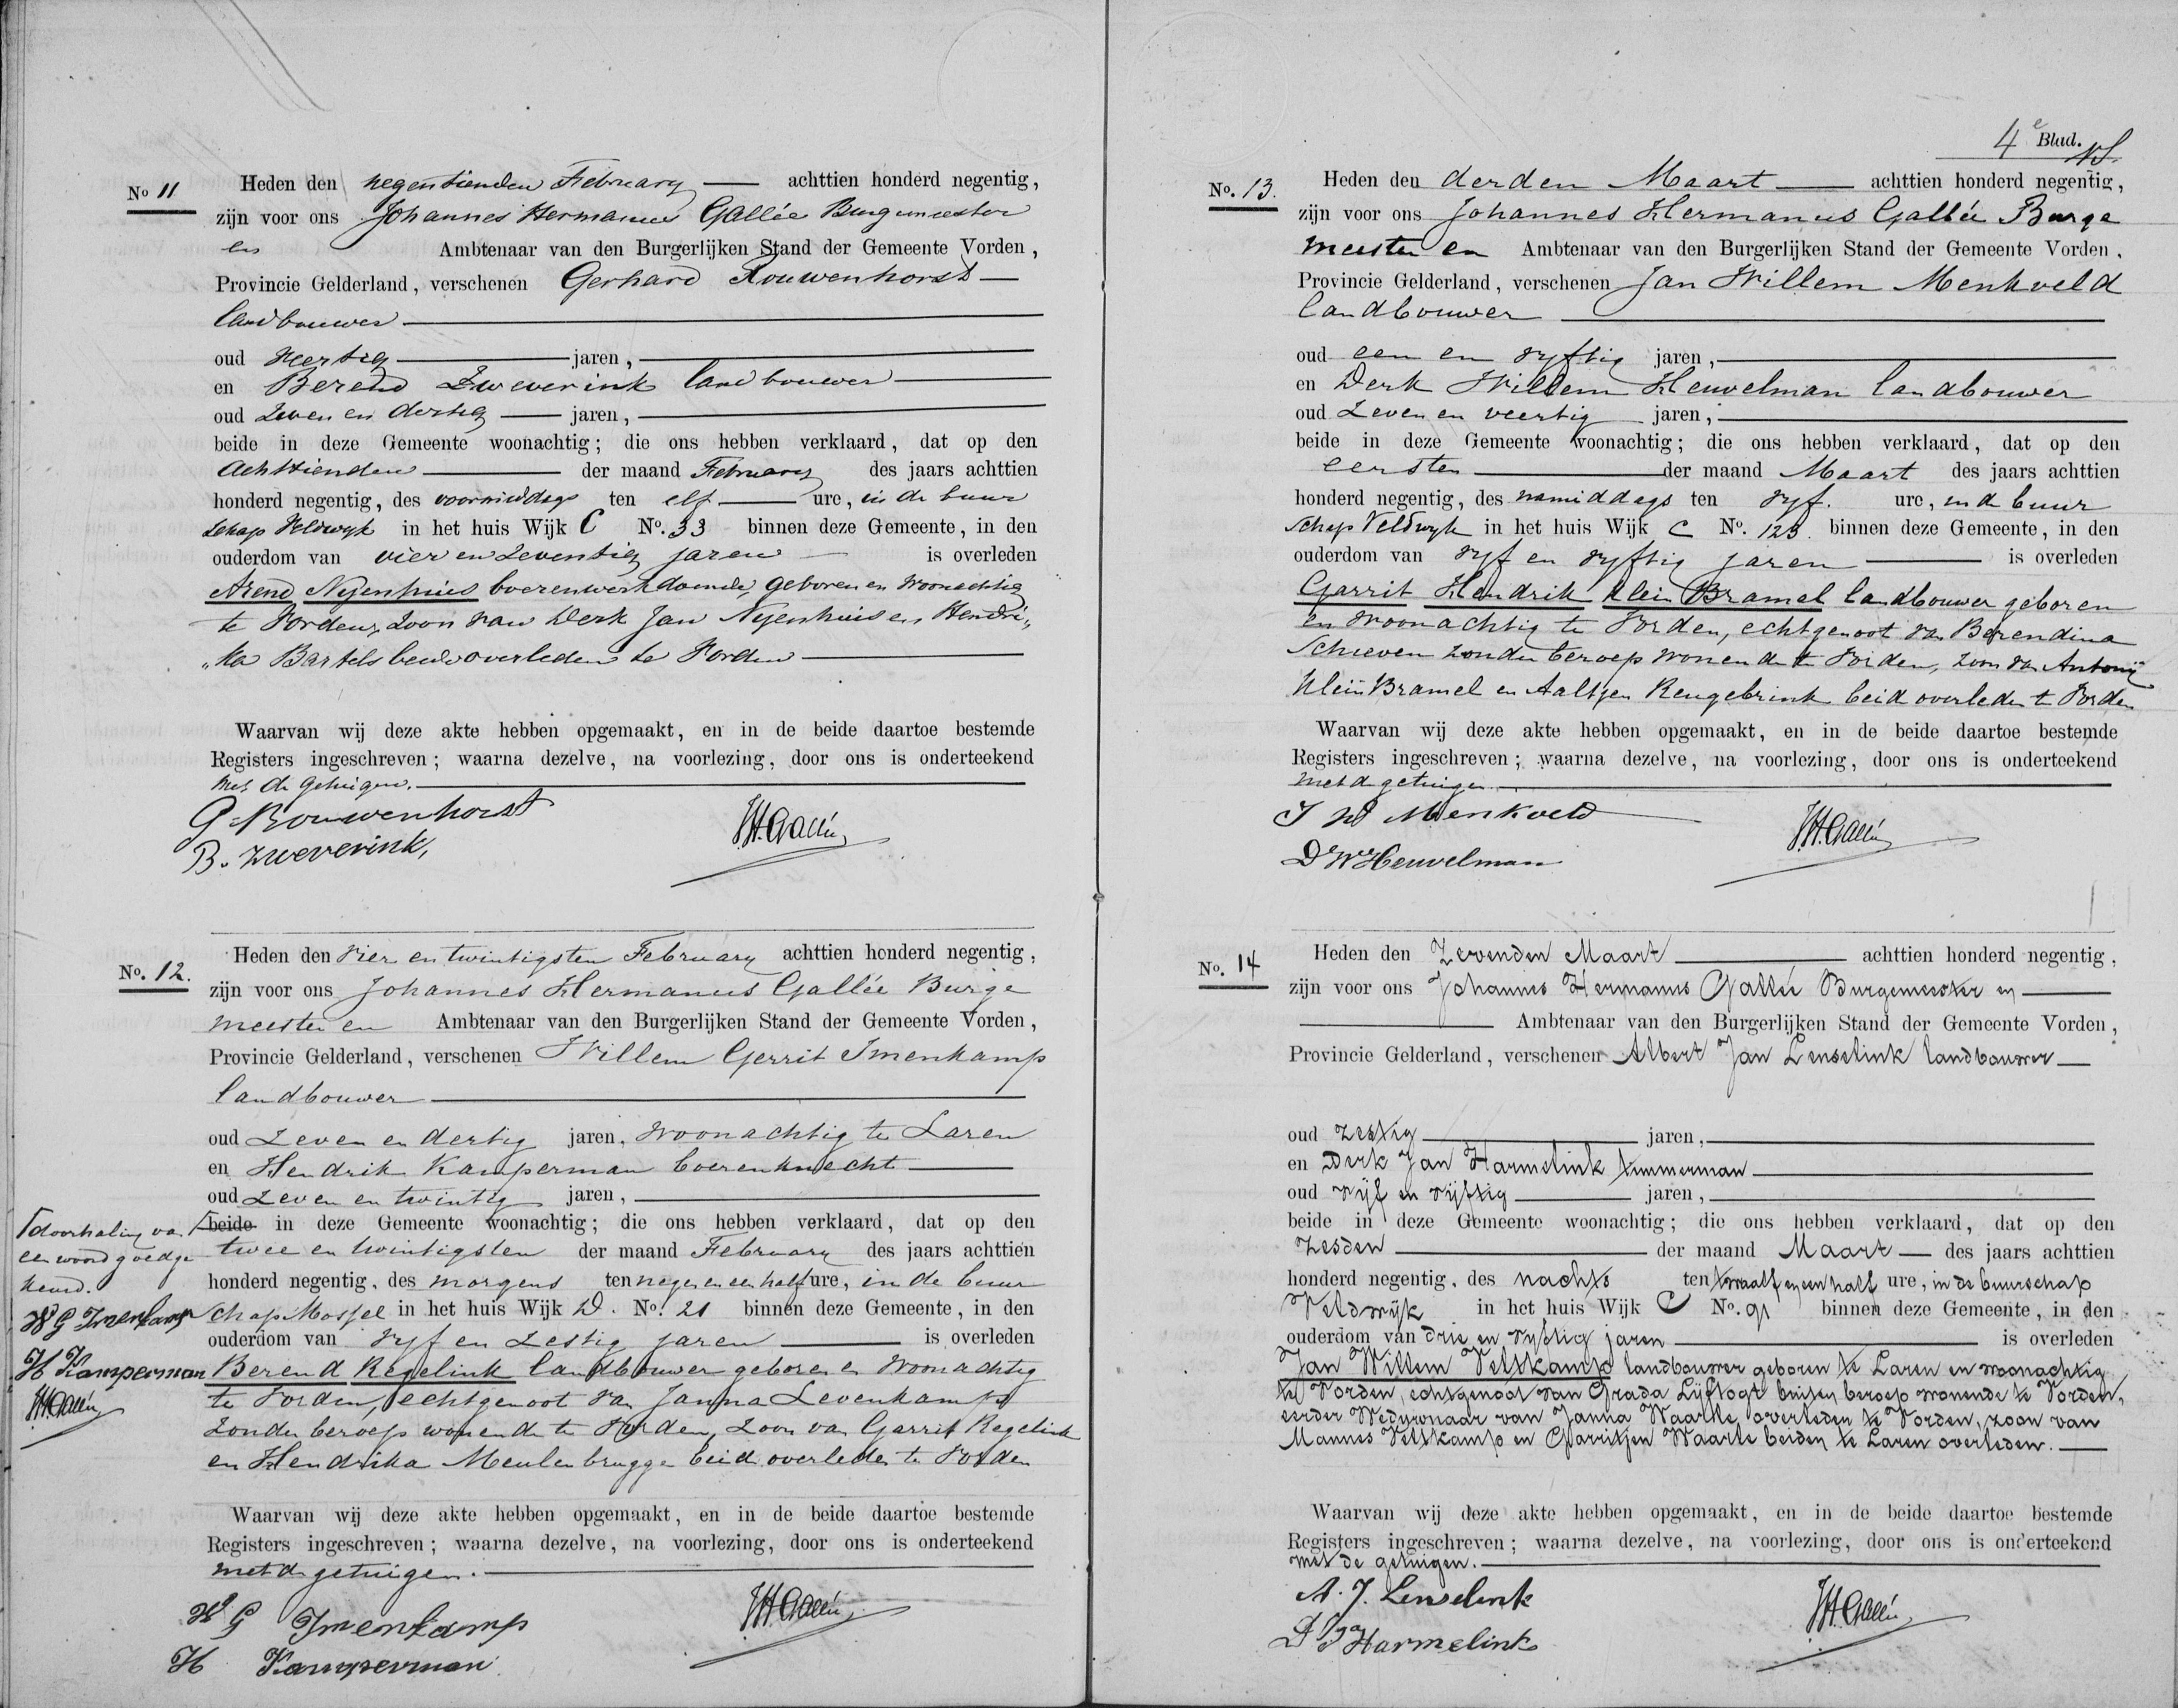 No 11
Heden den negentienden February achttien honderd negentig,
zijn voor ons Johannes Hermanus Gallée Burgemeester
en Ambtenaar van den Burgerlijken Stand der Gemeente Vorden,
Provincie Gelderland, verschenen Gerhard Rouwenhorst
landbouwer
oud jaren,
en Berend Zweverink landbouwer
oud Zeven en dertig jaren,
beide in deze Gemeente woonachtig; die ons hebben verklaard, dat op den
achttienden der maand February des jaars achttien
honderd negentig, des voormiddags ten elf ure, in de buur
schap Veldwyk in het huis Wijk C No. 33 binnen deze Gemeente, in den
ouderdom van vier en Zeventig jaren is overleden
Arend Nyenhuis boerenwerkdoende, geboren en woonachtig
te Vorden, Zoon van Derk Jan Nyenhuis en Hendri„
„ka Bartels beide overleden te Vorden
Waarvan wij deze akte hebben opgemaakt, en in de beide daartoe bestemde
Registers ingeschreven; waarna dezelve, na voorlezing, door ons is onderteekend
met de getuigen.
G Rouwenhorst
B. Zweverink,
JH.Gallée
No. 12.
Heden den vier en twintigsten February achttien honderd negentig,
zijn voor ons Johannes Hermanus Gallée Burge
meester en Ambtenaar van den Burgerlijken Stand der Gemeente Vorden,
Provincie Gelderland, verschenen Willem Gerrit Imenkamp
landbouwer
oud Zeven en dertig jaren, woonachtig te Laren
en Hendrik Kamperman boerenknecht
oud Zeven en twintig jaren,
beide in deze Gemeente woonachtig; die ons hebben verklaard, dat op den
twee en twintigsten der maand February des jaars achttien
honderd negentig, des morgens ten negen en een half ure, in de buur
schap Mossel in het huis Wijk D. No. 21 binnen deze Gemeente, in den
ouderdom van vyf en Zestig jaren is overleden
Berend Regelink landbouwer geboren en woonachtig
te Vorden, echtgenoot van Janna Levenkamp
zonder beroep wonende te Vorden, Zoon van Garrit Regelink
en Hendrika Meulenbrugge beide overleden te Vorden
doorhaling van
een woord goedge
keurd.
W G Imenkamp
H Kamperman
JH.Gallée
Waarvan wij deze akte hebben opgemaakt, en in de beide daartoe bestemde
Registers ingeschreven; waarna dezelve, na voorlezing, door ons is onderteekend
met de getuigen.
W G Imenkamp
H Kamperman
JH.Gallée
4e Blad.
No. 13.
Heden den derden Maart achttien honderd negentig,
zijn voor ons Johannes Hermanus Gallée Burge
meester en Ambtenaar van den Burgerlijken Stand der Gemeente Vorden,
Provincie Gelderland, verschenen Jan Willem Menkveld
landbouwer
oud een en vyftig jaren,
en Derk Willem Heuvelman landbouwer
oud Zeven en veertig jaren,
beide in deze Gemeente woonachtig; die ons hebben verklaard, dat op den
eersten der maand Maart des jaars achttien
honderd negentig, des namiddags ten vyf. ure, in de buur
schap Veldwyk in het huis Wijk C No. 123. binnen deze Gemeente, in den
ouderdom van vyf en vyftig jaren is overleden
Garrit Hendrik Klein Bramel landbouwer geboren
en woonachtig te Vorden, echtgenoot van Berendina
Schieven zonder beroep wonende te Vorden, zoon van Antonij
Klein Bramel en Aaltjen Rengebrink beid overleden te Vorden
Waarvan wij deze akte hebben opgemaakt, en in de beide daartoe bestemde
Registers ingeschreven; waarna dezelve, na voorlezing, door ons is onderteekend
met de getuigen
J W Menkveld
D W Heuvelman
JH.Gallée
No. 14
Heden den Zevenden Maart achttien honderd negentig,
zijn voor ons Johannes Hermanus Gallée Burgemeester en
Ambtenaar van den Burgerlijken Stand der Gemeente Vorden,
Provincie Gelderland, verschenen Albert Jan Lenselink landbouwer
oud zestig jaren,
en Derk Jan Harmelink timmerman
oud vijf en vijftig jaren,
beide in deze Gemeente woonachtig; die ons hebben verklaard, dat op den
zesden der maand Maart des jaars achttien
honderd negentig, des nachts ten twaalf en een half ure, in de buurschap
Veldwijk in het huis Wijk C No. 91 binnen deze Gemeente, in den
ouderdom van drie en vyftig jaren is overleden
Jan Willem Veltkamp landbouwer geboren te Laren en woonachtig
te Vorden, echtgenoot van Grada Lijftogt buiten beroep wonende te Vorden,
eerder Weduwnaar van Janna Waarle overleden te Vorden, zoon van
Mannes Veltkamp en Garritjen Waarle beiden te Laren overleden.
Waarvan wij deze akte hebben opgemaakt, en in de beide daartoe bestemde
Registers ingeschreven; waarna dezelve, na voorlezing, door ons is onderteekend
met de getuigen.
A. J. Lenselink
D J Harmelink
JH.Gallée